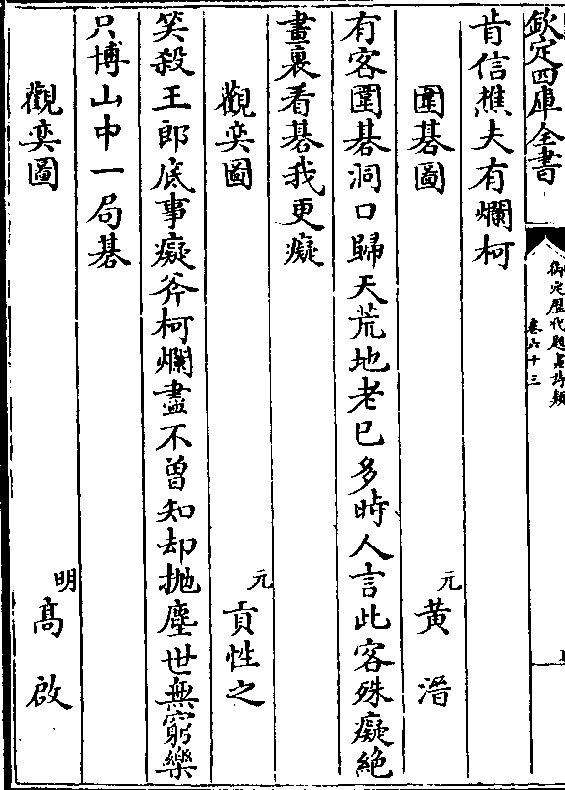 欽定四庫全書
御定歷代題畫詩類
卷六十三
肯信樵夫有爛柯
圍碁圖
元
黃溍
有客圍碁洞口歸天荒地老已多時人言此客殊癡絕
畫裏看碁我更癡
觀奕圖
元
貢性之
笑殺王郎底事癡斧柯爛盡不曾知却拋塵世無窮樂
只博山中一局碁
觀奕圖
明
高啟